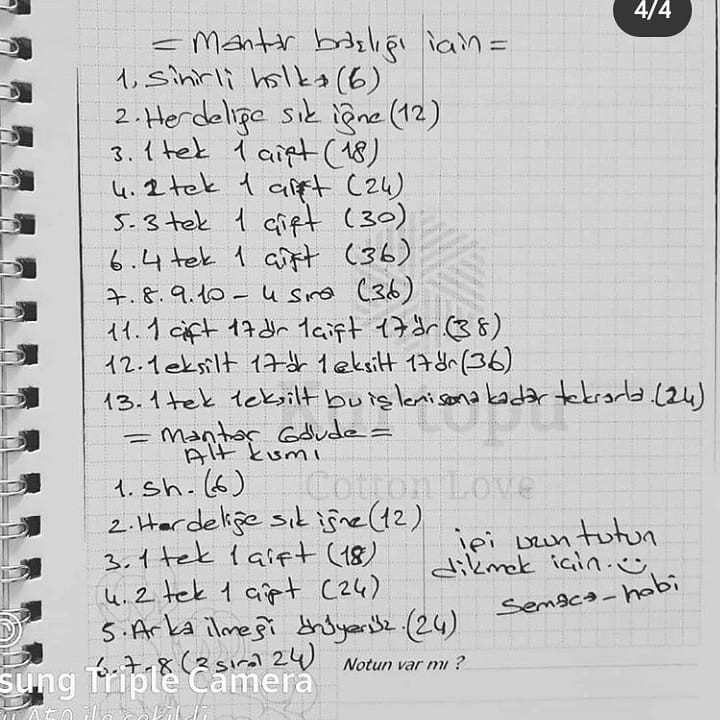 4/4
= Mantar başlığı için =
1. Sihirli halka (6)
2. Her deliğe sık iğne (12)
3. 1 tek 1 çift (18)
4. 2 tek 1 çift (24)
5. 3 tek 1 çift (30)
6. 4 tek 1 çift (36)
7. 8. 9. 10 - 4 sıra (36)
11. 1 çift 17 dr 1 çift 17 dr. (38)
12. 1 eksilt 17 dr 1 eksilt 17 dr (36)
13. 1 tek 1 eksilt bu işlemi sona kadar tekrarla. (24)
= Mantar Gövde =
Alt kısmı
topu
Cotton Love
1. sh. (6)
2. Her deliğe sık iğne (12)
3. 1 tek 1 çift (18)
4. 2 tek 1 çift (24)
5. Arka ilmeği örüyoruz. (24)
6. 7 - 8 (3 sıra 24)
ipi uzun tutun
dikmek için. ☺
Semaca-hobi
Notun var mı ?
sung Triple Camera
A50 ile çekildi